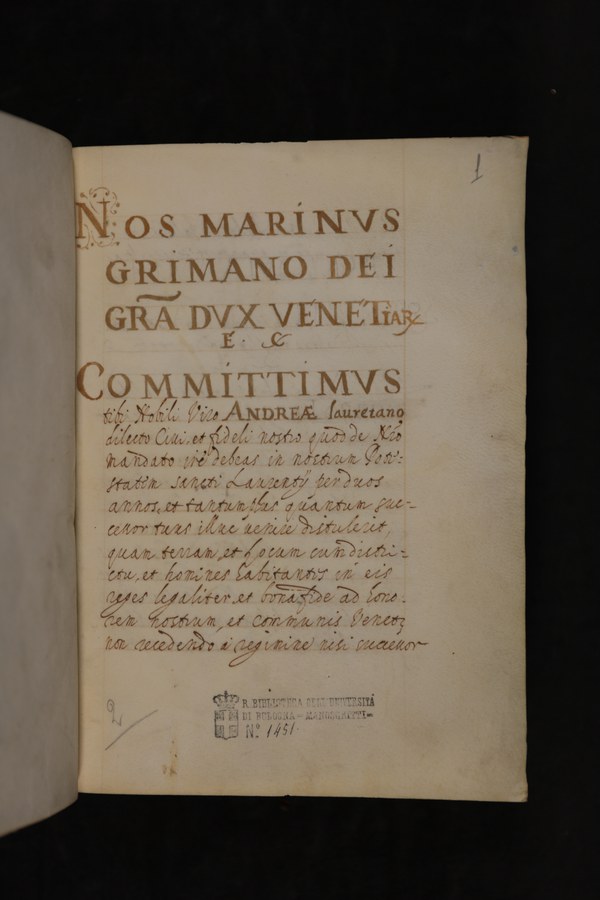 1
NOS MARINVS
GRIMANO DEI
GRÃ DVX VENETIAR
E. &
COMMITTIMVS
tibi Nobili Viro ANDREÆ lauretano
dilecto Ciui, et fideli nostro quod de Nrõ
mandato ire debeas in nostrum Pote-
statem sancti Laurentij per duos
annos, et tantum plus quantum suc-
cessor tuus illuc uenire distulerit,
quam terram, et Locum cum districtu
et homines habitantes in eis
reges legaliter, et bona fide ad hono-
rem nostrum, et communis Venetz
non recedendo à regimine nisi successor
2
R. BIBLIOTECA DELL'UNIVERSITÁ
DI BOLOGNA - MANOSCRITTI -
Nº 1451.